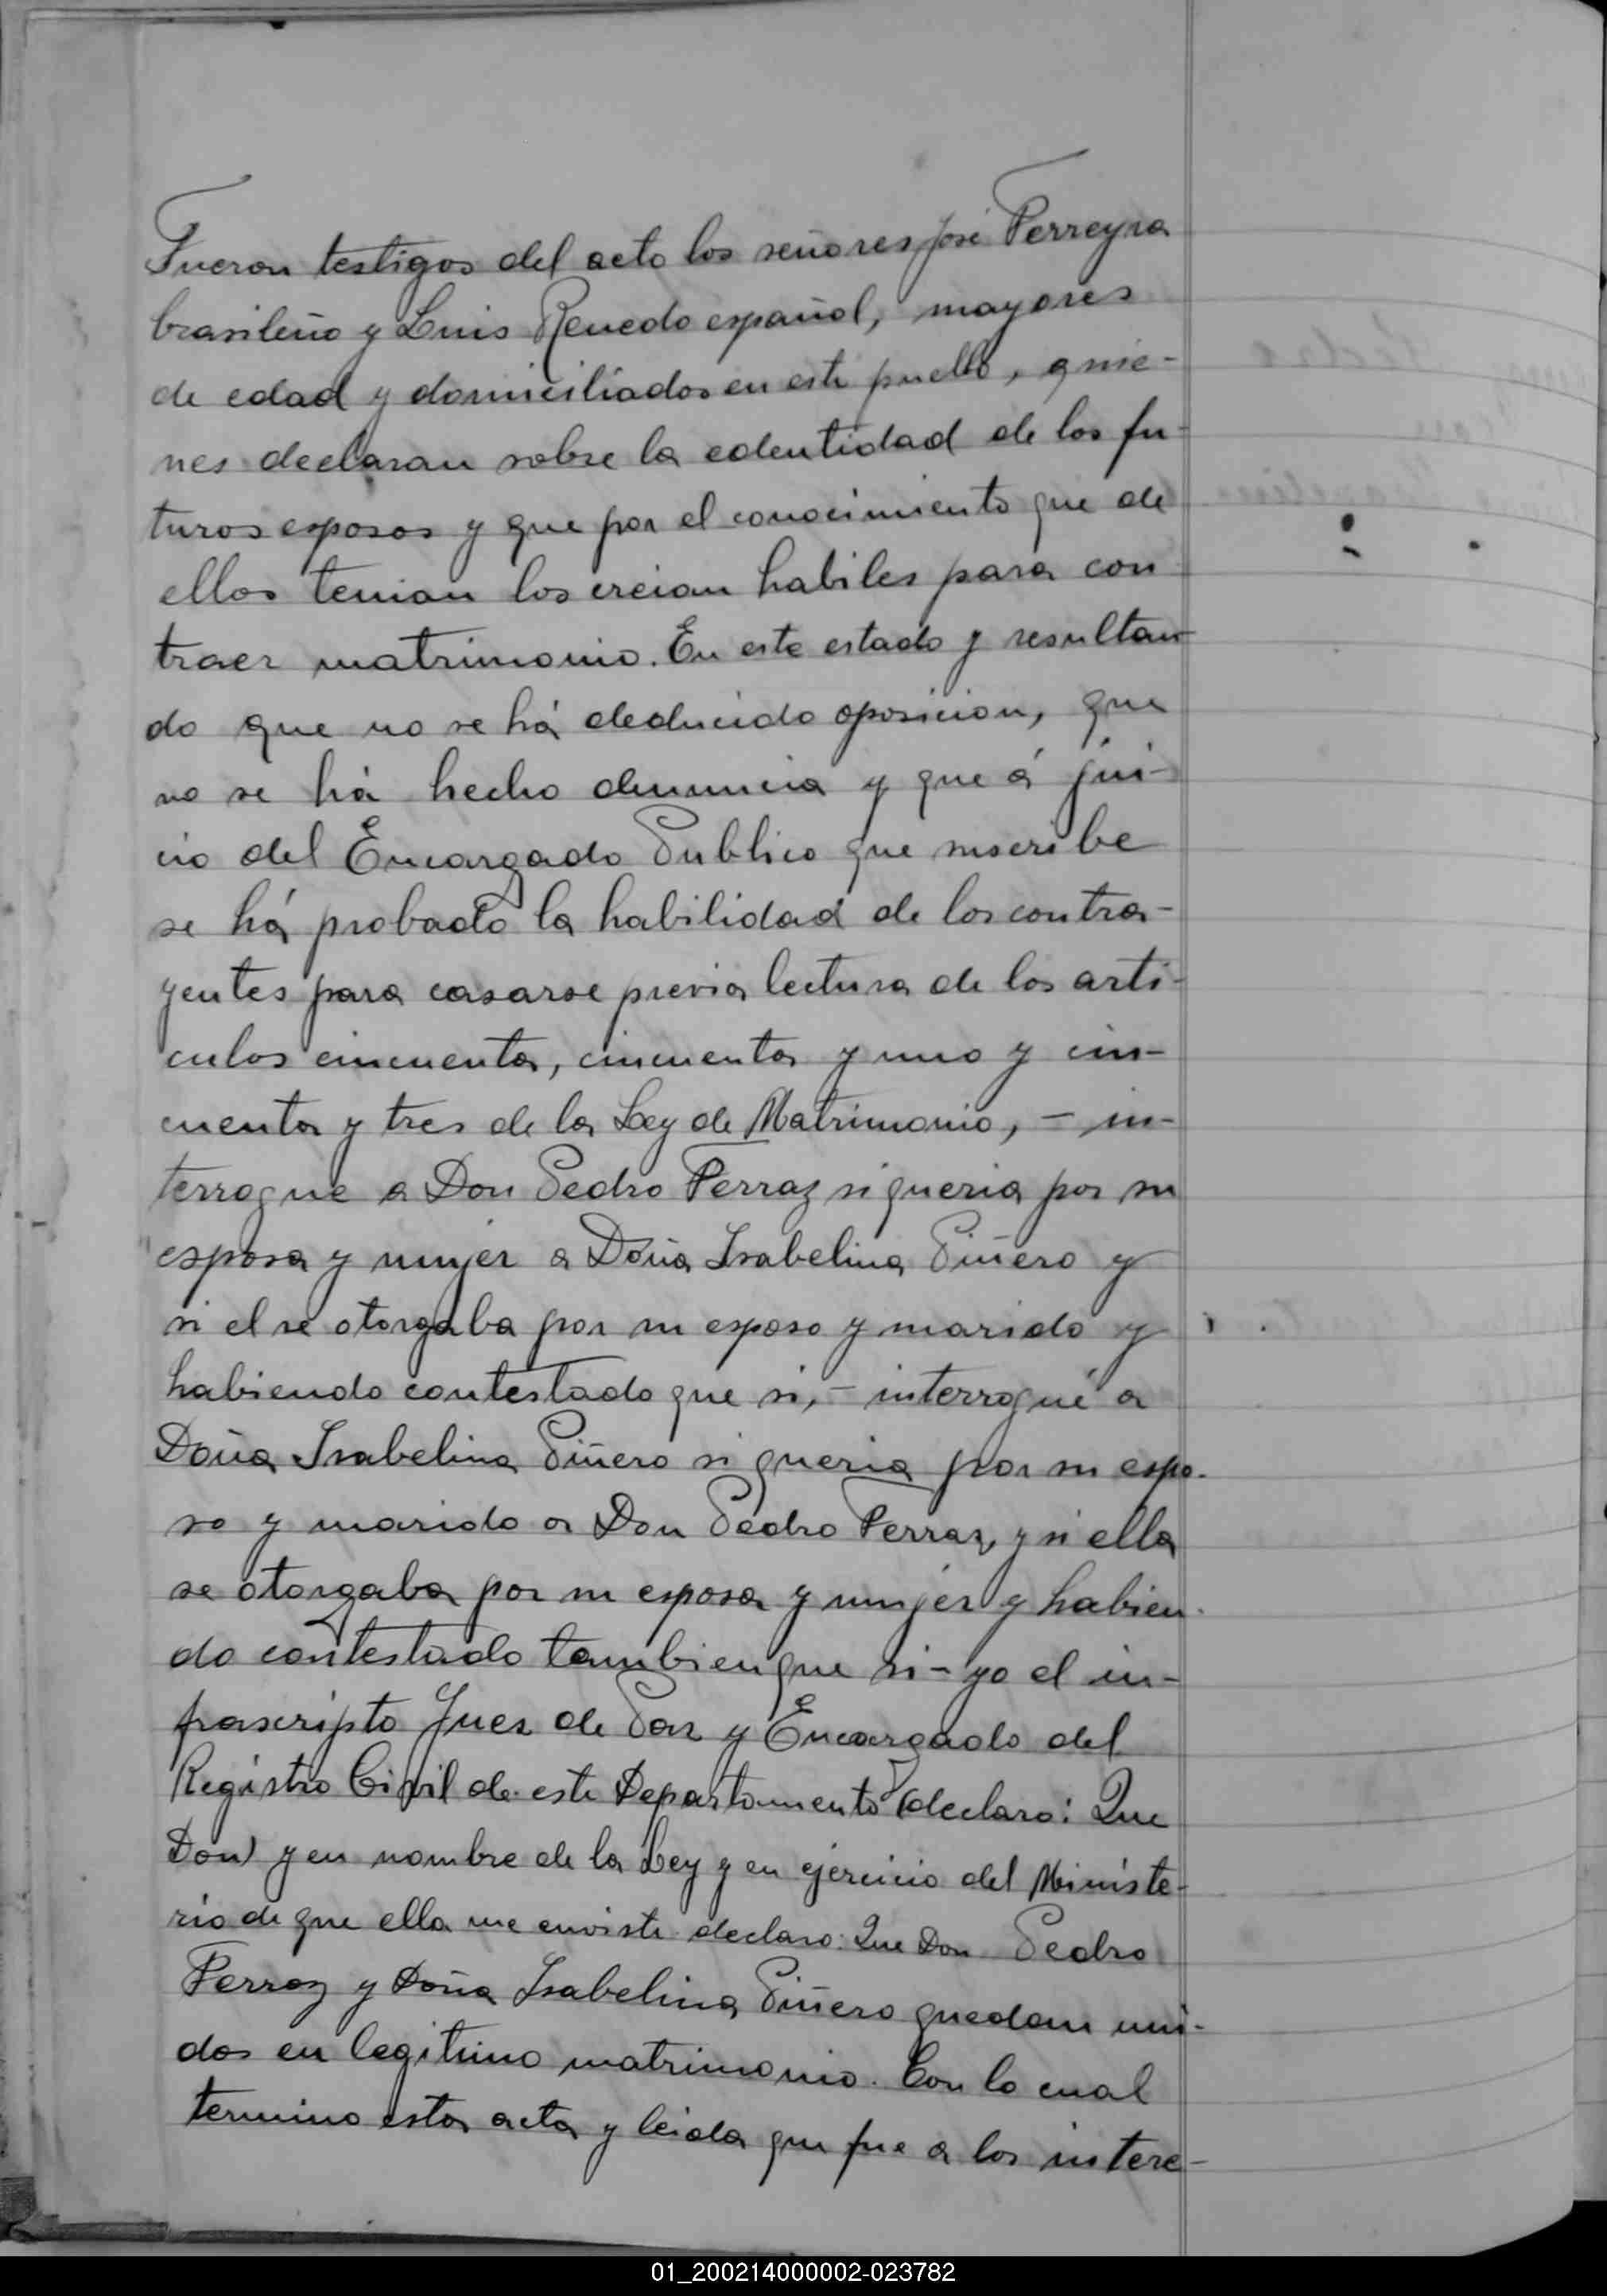 Fueron testigos del acto los señores José Ferreyra
brasileño y Luis Renedo español, mayores
de edad y domiciliados en este pueblo, quie-
nes declaran sobre la edentidad de los fu-
turos esposos y que por el conocimiento que de
ellos tenian los creian habiles para con
traer matrimonio. En este estado y resultan-
do que no se há deducido oposicion, que
no se há hecho denuncia y que á jui-
cio del Encargado Publico que suscribe
se há probado la habilidad de los contra-
yentes para casarse previa lectura de los arti-
culos cincuenta, cincuenta y uno y cin-
cuenta y tres de la Ley de Matrimonio, - in-
terrogue a Don Pedro Ferraz si queria por su
esposa y mujer a Doña Isabelina Piñero y
si el se otorgaba por su esposo y marido y
habiendo contestado que si, - interrogué a
Doña Isabelina Piñero si queria por su espo-
so y marido a Don Pedro Ferraz, y si ella
se otorgaba por su esposa y mujer y habien-
do contestado tambien que si - yo el in-
frascripto Juez de Paz y Encargado del
Registro Civil de este Departamento (declaro: Que
Don) y en nombre de la Ley y en ejercicio del Ministe-
rio de que ella me enviste declaro: Que Don Pedro
Ferraz y Doña Isabelina Piñero quedan uni-
dos en legitimo matrimonio. Con lo cual
termino esta acta y leida que fue a los intere-
01_200214000002-023782